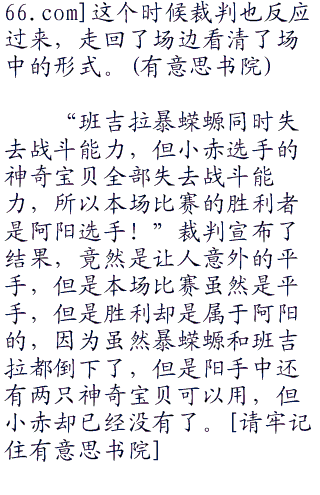 66.com]这个时候裁判也反应
过来，走回了场边看清了场
中的形式。(有意思书院)
“班吉拉暴蝾螈同时失
去战斗能力，但小赤选手的
神奇宝贝全部失去战斗能
力，所以本场比赛的胜利者
是阿阳选手！”裁判宣布了
结果，竟然是让人意外的平
手，但是本场比赛虽然是平
手，但是胜利却是属于阿阳
的，因为虽然暴蝾螈和班吉
拉都倒下了，但是阳手中还
有两只神奇宝贝可以用，但
小赤却已经没有了。[请牢记
住有意思书院]